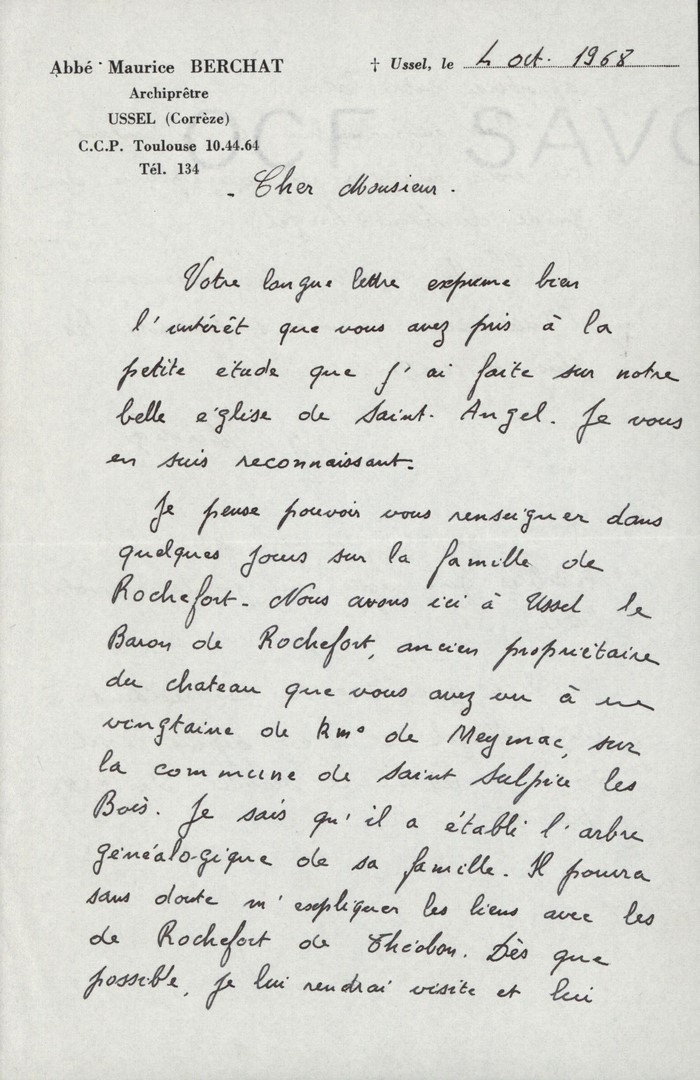 Abbé Maurice BERCHAT
Archiprêtre
USSEL (Corrèze)
C.C.P. Toulouse 10.44.64
Tél. 134
† Ussel, le 4 oct. 1968
OCF SAVO
- Cher Monsieur.
Votre longue lettre exprime bien
l'intérêt que vous avez pris à la
petite étude que j'ai faite sur notre
belle église de Saint-Angel. Je vous
en suis reconnaissant.
Je pense pouvoir vous renseigner dans
quelques jours sur la famille de
Rochefort. Nous avons ici à Ussel le
Baron de Rochefort, ancien propriétaire
du chateau que vous avez vu à une
vingtaine de kms de Meymac, sur
la commune de Saint Sulpice les
Bois. Je sais qu'il a établi l'arbre
généalogique de sa famille. Il pourra
sans doute m'expliquer les liens avec les
de Rochefort de Théobon. Dès que
possible, je lui rendrai visite et lui